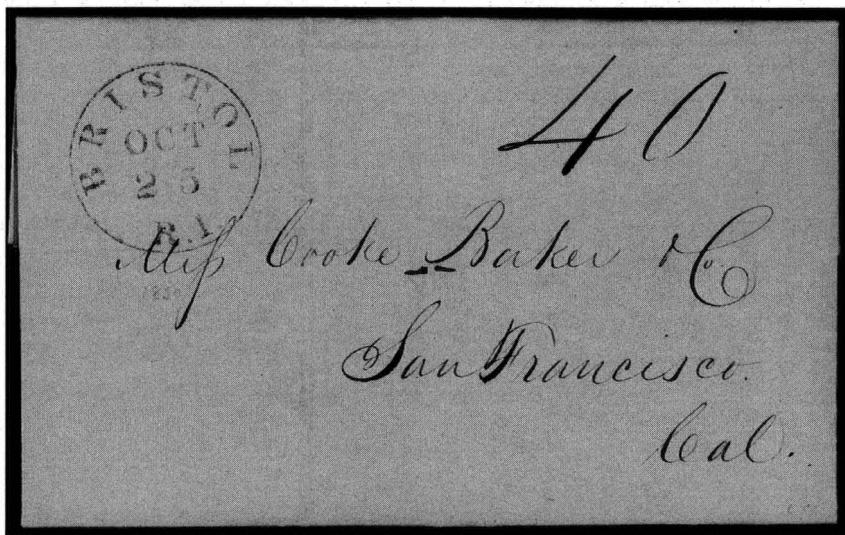 BRISTOL
OCT
25
R.I.
40
Mess Cooke Baker & Co
San Francisco.
Cal.